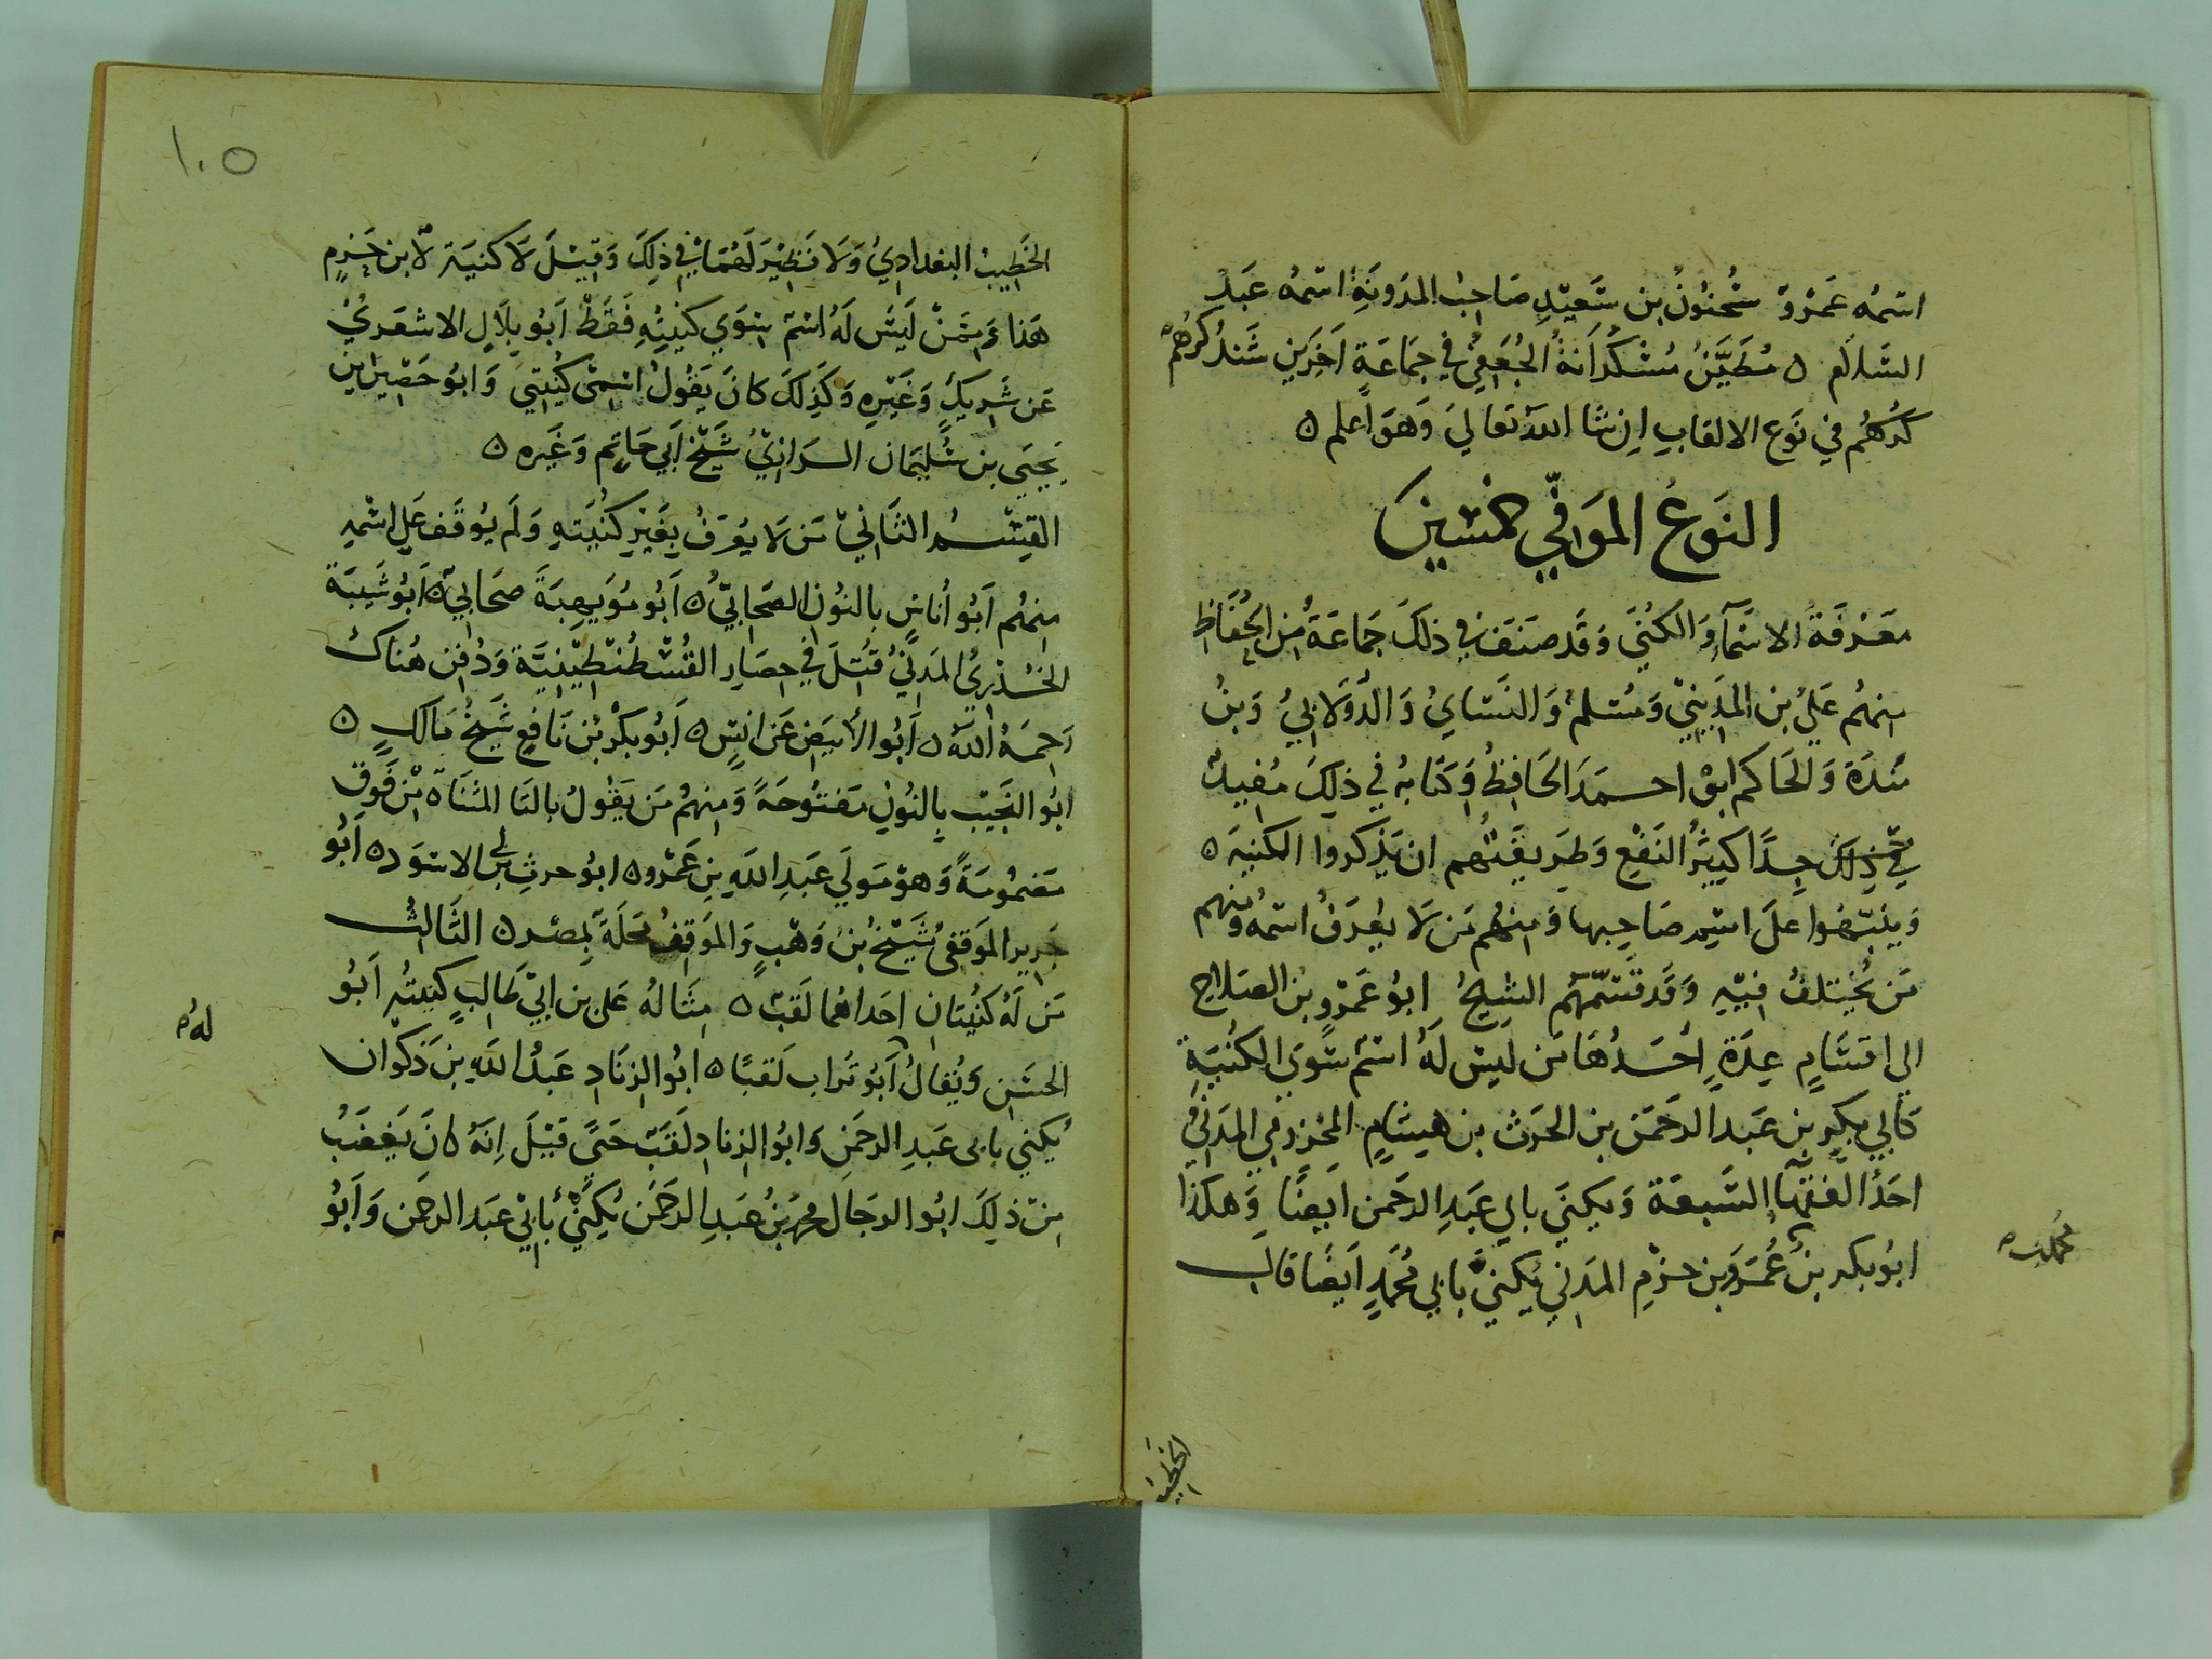 اسمه عَمرو سُحنون بن سَعيد صَاحبُ المدونَةِ اسمه عَبد
السَّلَام ٥ مُطَيَّن مُشكُدَانهُ الجُعَفِيُّ في جَمَاعَةٍ اَخَرين سَنذكرُهُم
كرهُم في نَوع الالقابِ اِن شا اللهُ تعَالي وَهوَ اَعلم ٥
النَوعُ المَوَافي خمسين
مَعَرفَةُ الاسمَآءِ وَالكُنَي وَقَد صنَفَ في ذلكَ جَمَاعَةُ مِن الحُفَاظِ
منهُم عَليُ بن المَدِينيِّ وَمُسَلم وَالنَسَايُ وَالدُولَابيُ وَبنُ
مَندَة وَالحَاكم ابو احمَدَ الحَافِظُ وَكتابهُ في ذلِكَ مُفِيد
في ذلكَ جِدَّا كثِيرُ النَفعِ وَطَريقَتُهم ان يَذكروا الكنيَه ٥
وَينَبّهوا علَى اسم صَاحِبها وَمنهُم مَن لَا يعُرَفُ اسمُه ومنهم
مَن يُختلفُ فيهِ وَقَد قسَّمَهُم الشيخُ ابوُ عَمرو بن الصَلاح
الي اقسَامٍ عِدَةٍ اَحَدُهَا مَن ليسَ لَهُ اسمٌ سِوَي الكُنيَةِ
كَابي بكرِ بن عَبد الرَحمَن بن الحَرث بن هِشَامٍ المخزومي المَدَنيُ
احَدُ الفقهآ السَبعَة وَيكني بابي عَبدِ الرحَمن اَيضًا وَهكذا
ابوُبكر بنُ محمد بن عُمَرو بن حزمِ المدَني يكني بابي مُحَمدٍ اَيضًا قالــ
الخطيب
الخَطيبُ البغدَاديُ وَلَا نَظِيرَ لهُمَا في ذلِكَ وَقِيلَ لَا كنيَة لابن حَزمٍ
هَذا وَمِمَن ليسَ لَهُ اسمٌ سِوَي كنيتِهِ فَقَطْ اَبوُ بلَالٍ الاشعَريُ
عَن شَرِيكٍ وَغَيرِهِ وَكَذلكَ كانَ يَقُولُ اسمِي كنُيَتي وَابوُ حَصِين ابن
يَحيَي بن سُليمَان الرَازِيُ شَيخُ اَبي حَاتِم وَغَيره ٥
القِسمُ الثَاني مَن لَا يعُرَفُ بِغَيرِ كنُيَتهِ وَلَم يُوقَف عَلي اسمِهِ
منهُم اَبوُ اُناسٍ بالنُونِ الصَحَابيُّ ٥ اَبوُ مُوَيهِبَةَ صحَابيٌ ٥ اَبوُ شَيبَة
الخُدريُ المدَنيُ قتُلَ في حِصَارِ القُسْطُنْطِينيَّة وَدُفِن هُناكَ
رَحِمَهُ اللهُ ٥ اَبوُ الاَبيَضِ عَن انسٍ ٥ اَبوُ بكر بُن نَافِعٍ شَيخُ مَالكٍ ٥
ابوُ النَجِيب بِالنُونِ مَفتوُحَةً وَمنهُم مَن يَقوُلُ بالتَا المثَنَاه مِن فَوقِ
مَضموُمَةً وَهوَ مَولَي عَبدِ اللهِ بن عَمرو ٥ ابوُ حرثِ بن ابي الاسوَد ٥ اَبوُ
جَرير الموَقفي شيخُ بنُ وَهبٍ وَالموَقِفُ محَلَة بمِصر ٥ الثَالثُ
مَن لَهُ كنُيَتان احَداهُما لَقبٌ ٥ مثَالهُ عَلي بن ابي طَالبٍ كنيتُه اَبوُ
الحسَن وَيقُالُ لَهُ اَبوُ ترُاب لَقبًا ٥ ابوُ الزِنَادِ عَبدُ اللهِ بن ذكوَان
يُكني بابي عَبدِ الرحَمَن وَابوُ الزناد لقَبٌ حَتَى قيلَ اِنهُ كانَ يَغضَبُ
مِن ذلِكَ ابوُ الرجَال محمد بنُ عَبدِ الرَحمَن يُكنيُ بابي عَبد الرحمَن وَاَبوُ
١٠٥